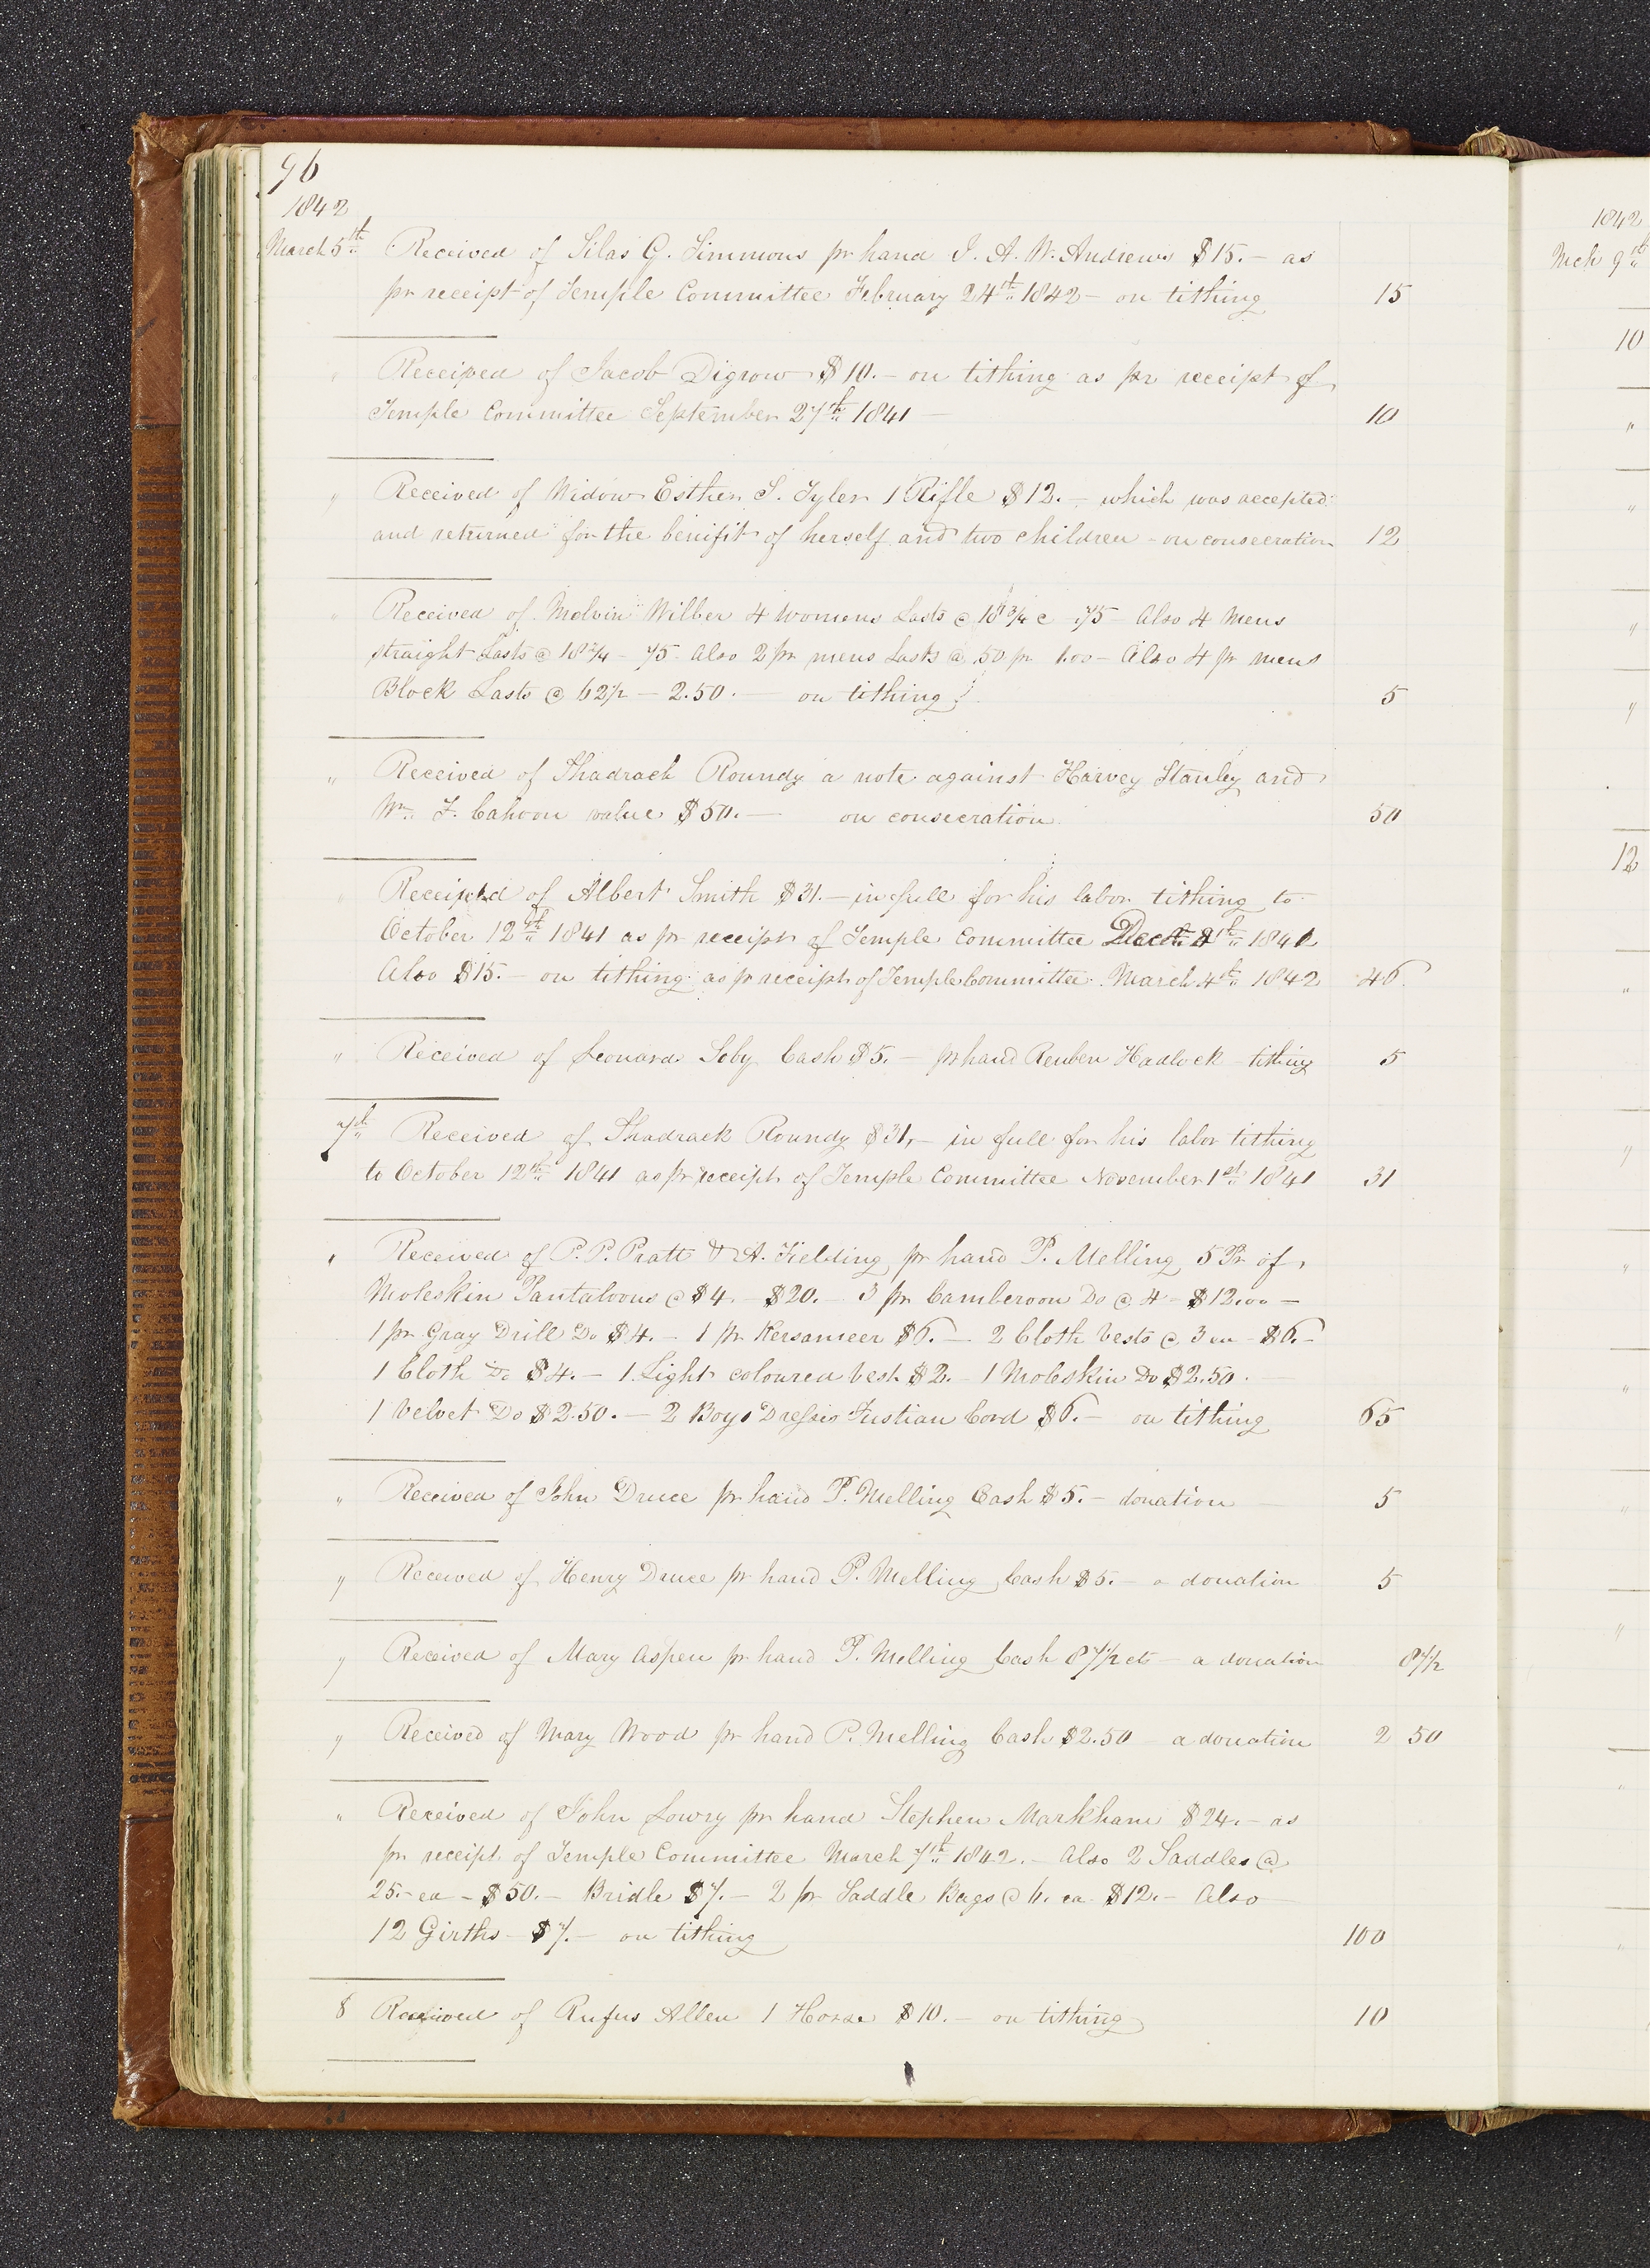 96
1842
March 5th Received of Silas G. Simmons pr hand I. A. W. Andrews $15.– as
pr receipt of Temple Committee February 24th 1842 – on tithing 15
" Received of Jacob Digrow $10.– on tithing as pr receipt of
Temple Committee September 27th 1841 — 10
" Received of Widow Esther S. Tyler 1 Rifle $12.– which was accepted
and returned for the benifit of herself and two children – on consecration 12
" Received of Melvin Wilber 4 Womens Lasts @ 18 3/4 c – 75 – Also 4 Mens
straight Lasts @ 18 3/4 – 75 – Also 2 pr mens Lasts @ 50 pr 1.00 – Also 4 pr mens
Block Lasts @ 62 1/2 – 2.50. — on tithing 5
" Received of Shadrach Roundy a note against Harvey Stanley and
Wm. F. Cahoon value $50.— on consecration 50
" Received of Albert Smith $31.– in full for his labor tithing to
October 12th 1841 as pr receipt of Temple Committee 1841
Also $15.– on tithing as pr receipt of Temple Committee March 4th 1842 46
" Received of Leonard Soby Cash $5.– pr hand Reuben Hadlock – tithing 5
7th Received of Shadrack Roundy $31,– in full for his labor tithing
to October 12th 1841 as pr receipt of Temple Committee November 1st 1841 31
" Received of P. P. Pratt & A. Fielding pr hand P. Melling 5 Pr of
Moleskin Pantaloons @ $4.– $20.– 3 pr Camberoon Do @ 4 – $12.00 –
1 pr Gray Drill Do $4.– 1 Pr Kersameer $6.– 2 Cloth Vests @ 3 ea – $6.–
1 Cloth Do $4.– 1 Light coloured Vest $2.– 1 Moleskin Do $2.50. –
1 Velvet Do $2.50. – 2 Boys Dresses Fustian Cord $6.– on tithing 65
" Received of John Druce pr hand P. Melling Cash $5.– donation 5
" Received of Henry Druce pr hand P. Melling Cash $5.– a donation 5
" Received of Mary Aspen pr hand P. Melling Cash 87 1/2 cts – a donation 87 1/2
" Received of Mary Wood pr hand P. Melling Cash $2.50 – a donation 2 50
" Received of John Lowry pr hand Stephen Markham $24.– as
pr receipt of Temple Committee March 7th 1842. – Also 2 Saddles @
25.– ea – $50.– Bridle $7.– 2 pr Saddle Bags @ 6. ea $12.– Also
12 Girths – $7.– on tithing 100
8 Received of Rufus Allen 1 Horse $10.– on tithing 10
1842
Mch 9th
10
"
"
"
"
12
"